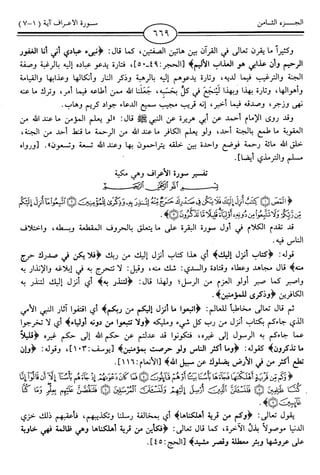 الجزء الثامن
سورة الأعراف آية (١-٧)
٦٦٩
وكثيراً ما يقرن تعالى في القرآن بين هاتين الصفتين، كما قال: ﴿نبىء عبادي أني أنا الغفور
الرحيم وأن عذابي هو العذاب الأليم﴾ [الحجر: ٤٩، ٥٠]، فتارة يدعو عباده إليه بالرغبة وصفة
الجنة والترغيب فيما لديه، وتارة يدعوهم إليه بالرهبة وذكر النار وأنكالها وعذابها والقيامة
وأهوالها، وتارة بهذا وبهذا لينجع في كل بحسبه، جعلنا الله ممن أطاعه فيما أمر، وترك ما عنه
نهى وزجر، وصدقه فيما أخبر، إنه قريب مجيب سميع الدعاء جواد كريم وهاب.
وقد روى الإمام أحمد عن أبي هريرة عن النبي ﷺ قال: «لو يعلم المؤمن ما عند الله من
العقوبة ما طمع بالجنة أحد، ولو يعلم الكافر ما عند الله من الرحمة ما قنط أحد من الجنة،
خلق الله مائة رحمة فوضع واحدة بين خلقه يتراحمون بها وعند الله تسعة وتسعون». [ورواه
مسلم والترمذي أيضاً].
تفسير سورة الأعراف وهي مكية
بسم الله الرحمن الرحيم
﴿الٓمٓصٓ كتاب أنزل إليك فلا يكن في صدرك حرج منه لتنذر به وذكرى للمؤمنين اتبعوا ما أنزل إليكم
من ربكم ولا تتبعوا من دونه أولياء قليلاً ما تذكرون﴾.
قد تقدم الكلام في أول سورة البقرة على ما يتعلق بالحروف المقطعة وبسطه، واختلاف
الناس فيه.
قوله: ﴿كتاب أنزل إليك﴾ أي هذا كتاب أنزل إليك من ربك ﴿فلا يكن في صدرك حرج
منه﴾ قال مجاهد وعطاء وقتادة والسدي: شك منه، وقيل: لا تتحرج به في إبلاغه والإنذار به
واصبر كما صبر أولو العزم من الرسل؛ ولهذا قال: ﴿لتنذر به﴾ أي أنزل إليك لتنذر به
الكافرين ﴿وذكرى للمؤمنين﴾.
ثم قال تعالى مخاطباً للعالم: ﴿اتبعوا ما أنزل إليكم من ربكم﴾ أي اقتفوا آثار النبي الأمي
الذي جاءكم بكتاب أنزل من رب كل شيء ومليكه ﴿ولا تتبعوا من دونه أولياء﴾ أي لا تخرجوا
عما جاءكم به الرسول إلى غيره، فتكونوا قد عدلتم عن حكم الله إلى حكم غيره ﴿قليلاً
ما تذكرون﴾ كقوله: ﴿وما أكثر الناس ولو حرصت بمؤمنين﴾ [يوسف: ١٠٣]، وقوله: ﴿وإن
تطع أكثر من في الأرض يضلوك عن سبيل الله﴾ [الأنعام: ١١٦].
﴿وكم من قرية أهلكناها فجاءها بأسنا بياتاً أو هم قائلون فما كان دعواهم إذ جاءهم بأسنا إلا أن قالوا إنا
كنا ظالمين فلنسألن الذين أرسل إليهم ولنسألن المرسلين فلنقصن عليهم بعلم وما كنا
غائبين﴾.
يقول تعالى: ﴿وكم من قرية أهلكناها﴾ أي بمخالفة رسلنا وتكذيبهم، فأعقبهم ذلك خزي
الدنيا موصولاً بذل الآخرة، كما قال تعالى: ﴿فكأين من قرية أهلكناها وهي ظالمة فهي خاوية
على عروشها وبئر معطلة وقصر مشيد﴾ [الحج: ٤٥].